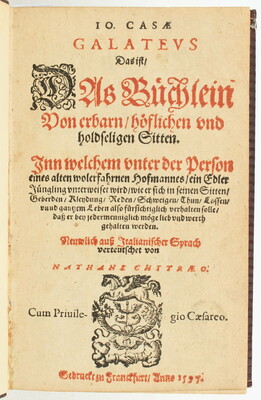 IO. CASÆ
GALATEVS
Das ist/
DAs Büchlein
Von erbarn/ höflichen vnd
holdseligen Sitten.
Inn welchem vnter der Person
eines alten wolerfahrnen Hofmannes/ ein Edler
Jüngling vnterweiset wird/ wie er sich in seinen Sitten/
Geberden/ Kleydung/ Reden/ Schweigen/ Thun/ Lassen/
vnnd gantzem Leben also fürsichtiglich verhalten solle/
daß er bey jedermenniglich möge lieb vnd werth
gehalten werden.
Newlich auß Italianischer Sprach
verteutschet von
NATHANE CHITRÆO.
Cum Priuile-
gio Cæsareo.
Gedruckt zu Franckfurt/ Anno 1597.